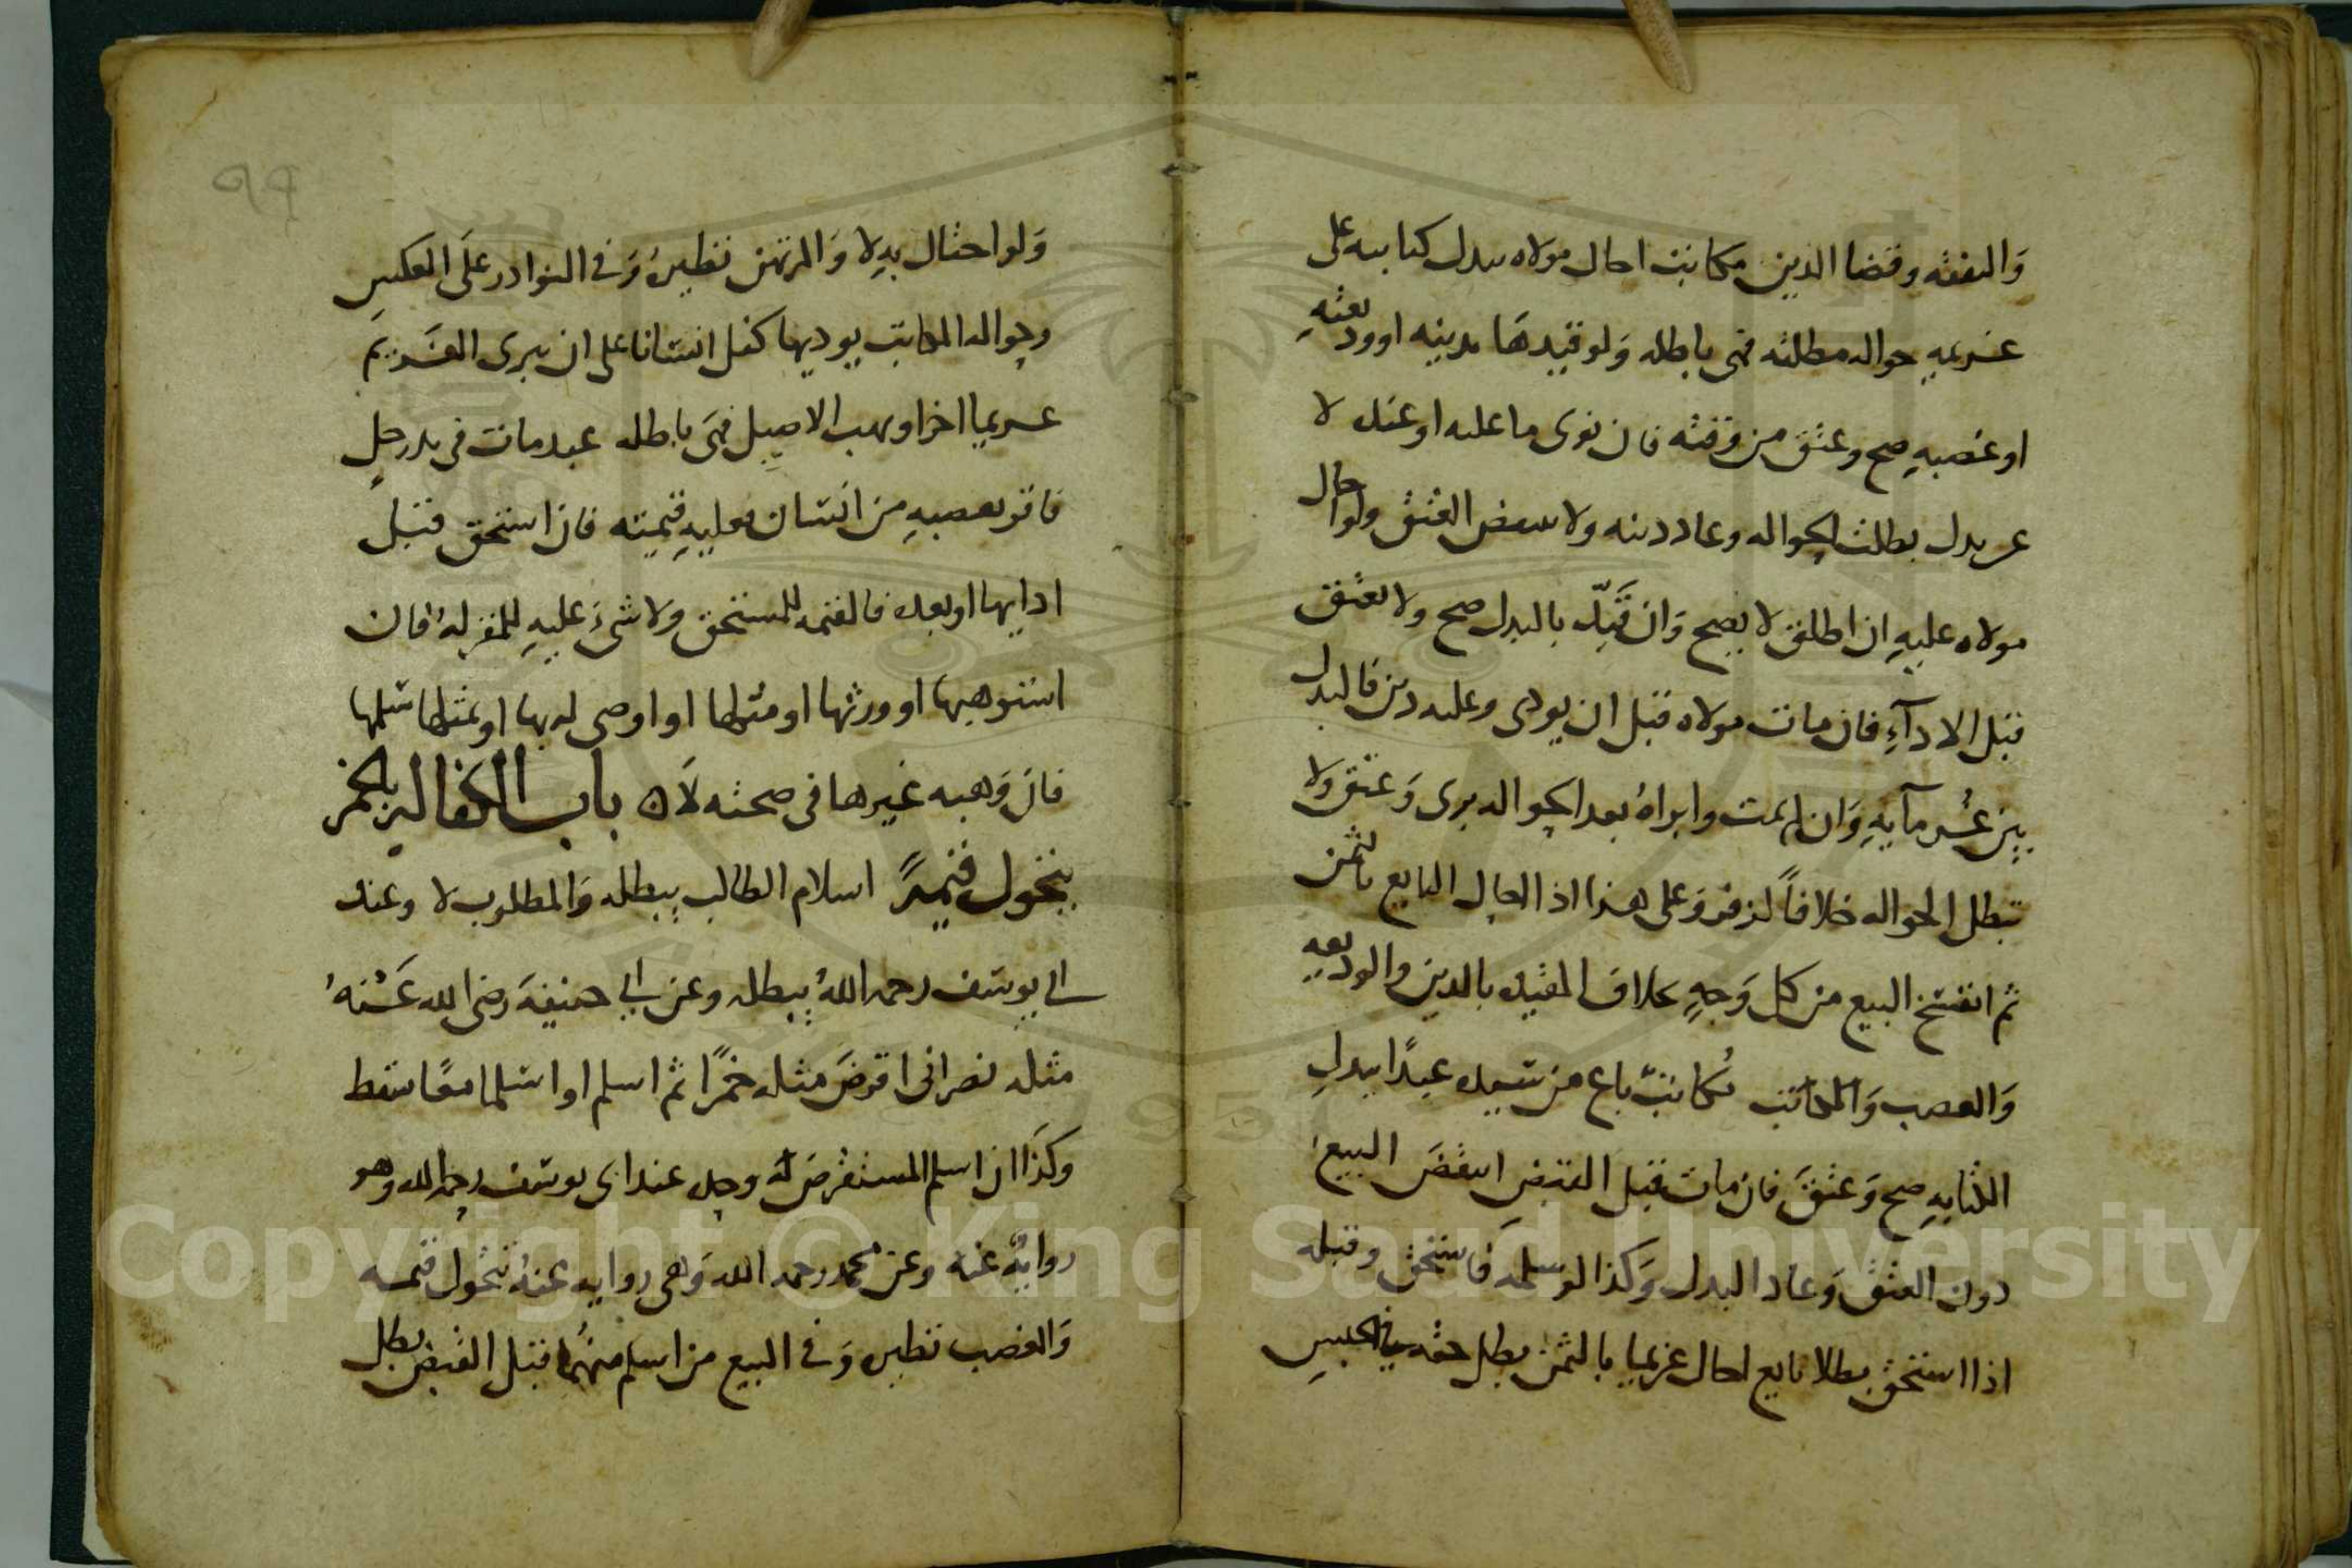 والنفقه وقضا الدين مكاتب احال مولاه ببدل كتابته على
غريمه حواله مطلقه فهى باطله وَلو قيدهَا بدينه اوودعته
او غصبهِ صح وعتق من وقته فان توى ما عليه او عنده لا
عن بدل بطلت الحواله وعاد دينه ولا ينتقض العتق ولو احال
مولاه عليهِ ان اطلق لا يصح وَان قَيّد بالبدل صح ولا يعتق
قبل الادآءِ فان مات مولاه قبل ان يودى وعليه دين فالبدل
بين غُرمآيهِ وَان لم يمت وابراهُ بعد الحواله برى وَعتق ولا
تبطل الحواله خلافاً لزفر وَعلى هذا اذا احال البايع بالثمن
ثم انفسخ البيع من كل وَجهٍ بخلاف المقيده بالدين والوديعه
وَالغصب وَالمكاتب مُكاتبٌ باع من سيده عبدًا ببدلِ
الكتابهِ صح وَعتقَ فان مات قبل القبض انتقضَ البيع
دون العتق وَعاد البدل وَكذا لو سلمه فاستحق وقبله
اذا استحق بطلا بايع احال غريما بالثمن بطل حقه في الحبسِ
99
وَلو احتال بهِ لا وَالمرتهن نظيرهُ وَفى النوادر على العكسِ
وحواله المكاتب يوديها كفل انسانا على ان يبرى الغريم
غريما اخر او يهب الاصيل فهَى باطله عبد مات فى يد رحلٍ
فاقر بغصبهِ من انسان فعليهِ قيمته فان استحق قبل
ادايها او بعده فالقيمه للمستحق ولا شىَ عليهِ للمقر لهُ فان
استوهبها او ورثها او مثلها او اوصى له بها او بمثلها سلمها
فان وَهبه غيرها فى صحته لَان باب الكفاله بالخمر
يتحول قيمةً اسلام الطالب يبطله وَالمطلوب لا وعند
ابى يوسف رحمه اللهُ يبطله وعن ابى حنيفهَ رضى الله عَنهُ
مثله نصرانى اقرضَ مثله خمرًا ثم اسلم او اسلما معًا سقط
وكذَا ان اسلم المستقرض لهُ وحده عند ابى يوسف رحمه الله وهو
روايهٌ عنهُ وعن محمد رحمه الله وَهى روايه عنهُ تتحول قيمه
وَالغصب نظيره وَفى البيع من اسلم منهُما قبل القبض بطل
Copyright © King Saud University
1957